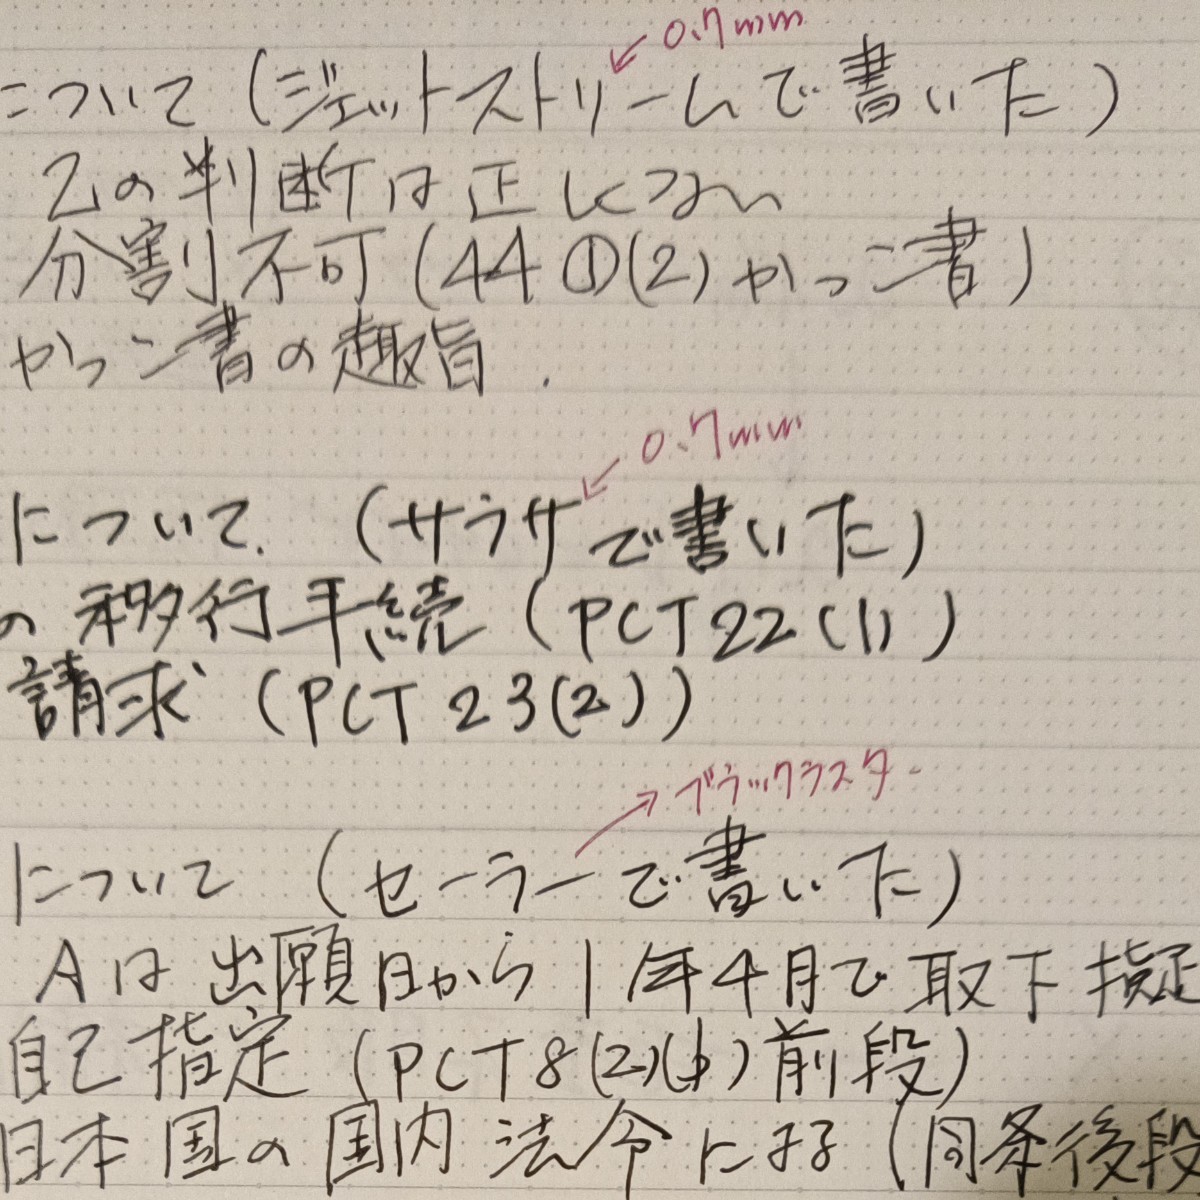 0.7mm
について(ジェットストリームで書いた)
乙の判断は正しくない
分割不可(44①(2)かっこ書)
かっこ書の趣旨.
0.7mm
について.(サラサで書いた)
の移行手続(PCT22(1))
請求(PCT23(2))
ブラックラスター
について(セーラーで書いた)
Aは出願日から1年4月で取下擬
自己指定(PCT8(2)(b)前段)
日本国の国内法令による(同条後段